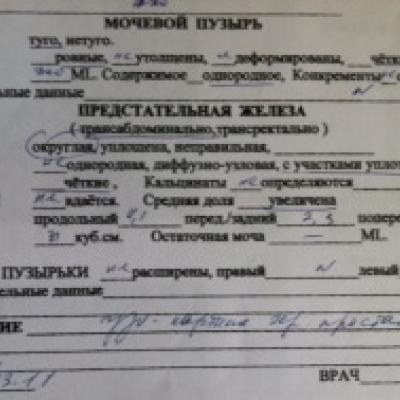 МОЧЕВОЙ ПУЗЫРЬ
туго, нетуго.
ровные, не утолщены, не деформированы, чётк
ML. Содержимое однородное, Конкременты
ьные данные N
ПРЕДСТАТЕЛЬНАЯ ЖЕЛЕЗА
(трансабдоминально, трансректально)
округлая, уплощена, неправильная,
не однородная, диффузно-узловая, с участками уплот
чёткие, Кальцинаты не определяются
не вдаётся. Средняя доля увеличена
продольный 4,1 перед./задний 3,3 попере
куб.см. Остаточная моча — ML.
ПУЗЫРЬКИ не расширены, правый N левый
ельные данные
ИЕ картина
ВРАЧ